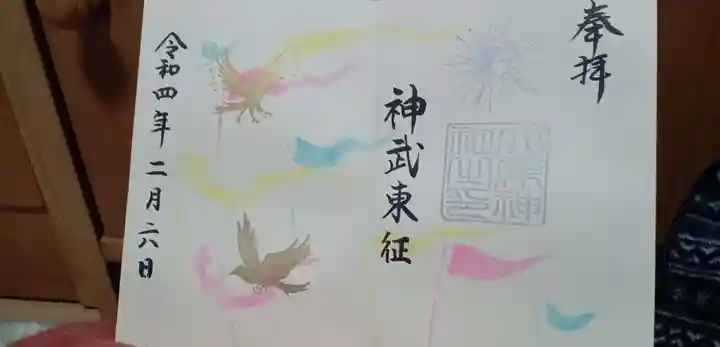 奉拝
神武東征
令和四年二月六日